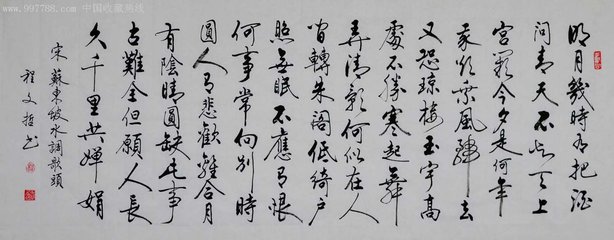 www.997788.com 中国收藏热线
明月幾時有把酒
问青天不知天上
宮闕今夕是何年
我欲乘風歸去
又恐瓊樓玉宇高
處不勝寒起舞
弄清影何似在人
间轉朱阁低綺户
照無眠不應有恨
何事常向别時
圓人有悲歡離合月
有陰晴圓缺此事
古難全但願人長
久千里共嬋娟
宋蘇東坡水調歌頭
程文哲书